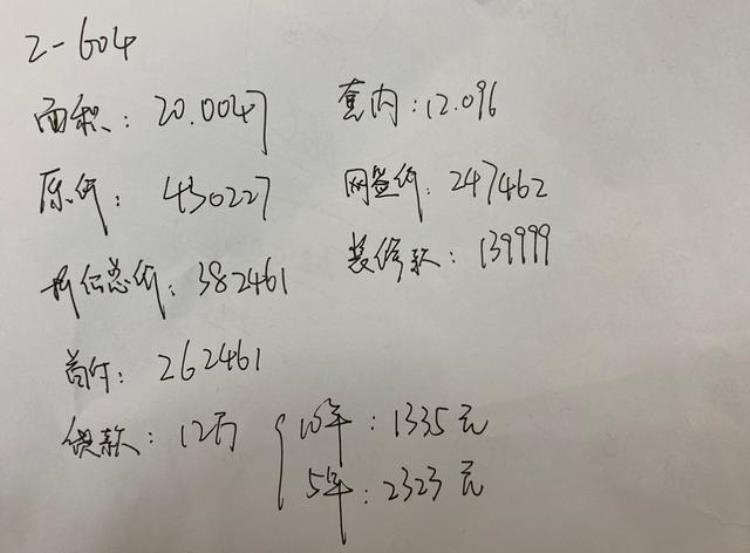 2-604
面积：20.0047 套内：12.096
原价：430227 网签价：247462
折后总价：382461 装修款：139999
首付：262461
贷款：12万 10年：1335元
5年：2323元